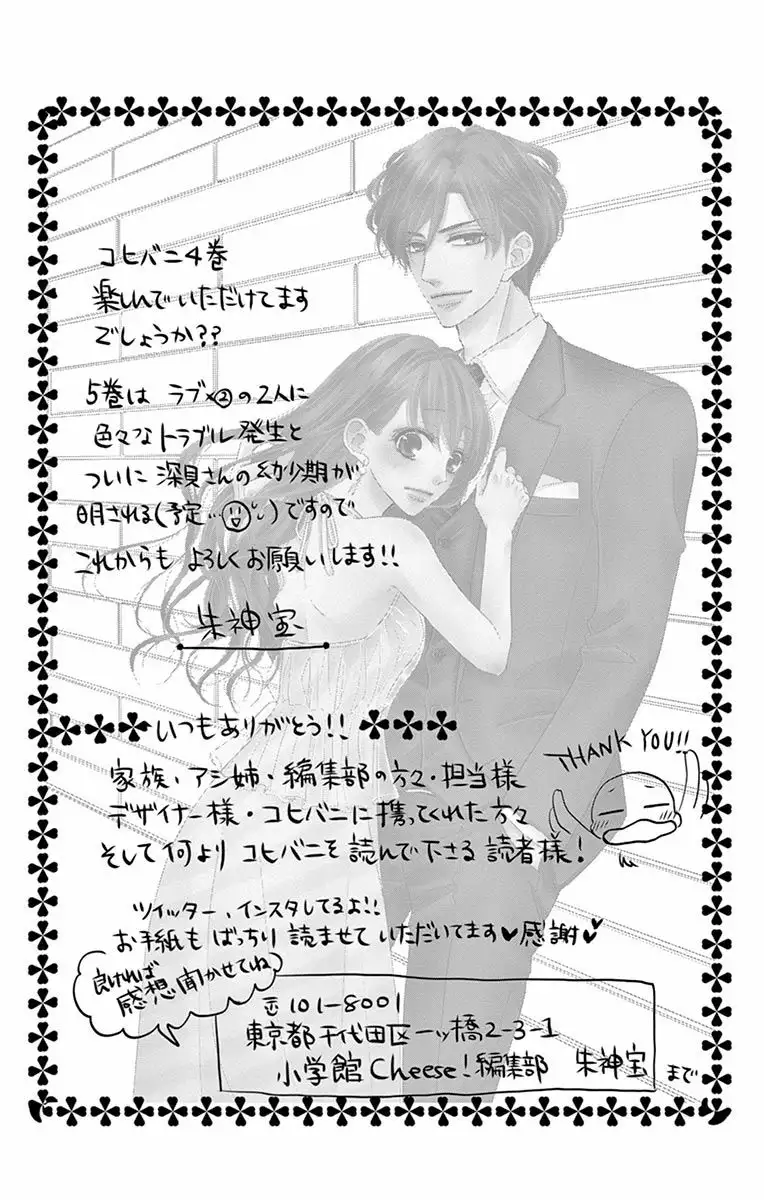 コヒバニ4巻
楽しんでいただけてます
でしょうか??
5巻は ラブ×②の2人に
色々なトラブル発生と
ついに 深見さんの幼少期が
明される(予定…)ですので
これからも よろしくお願いします!!
朱神宝
いつもありがとう!!
THANK YOU!!
家族、アシ姉・編集部の方々・担当様
デザイナー様・コヒバニに携ってくれた方々
そして何より コヒバニを読んで下さる 読者様!
ツイッター、インスタしてるよ!!
お手紙も ばっちり 読ませて いただいてます♥感謝♥
良ければ
感想聞かせてね
〒101-8001
東京都千代田区一ッ橋2-3-1
小学館Cheese!編集部 朱神宝 まで